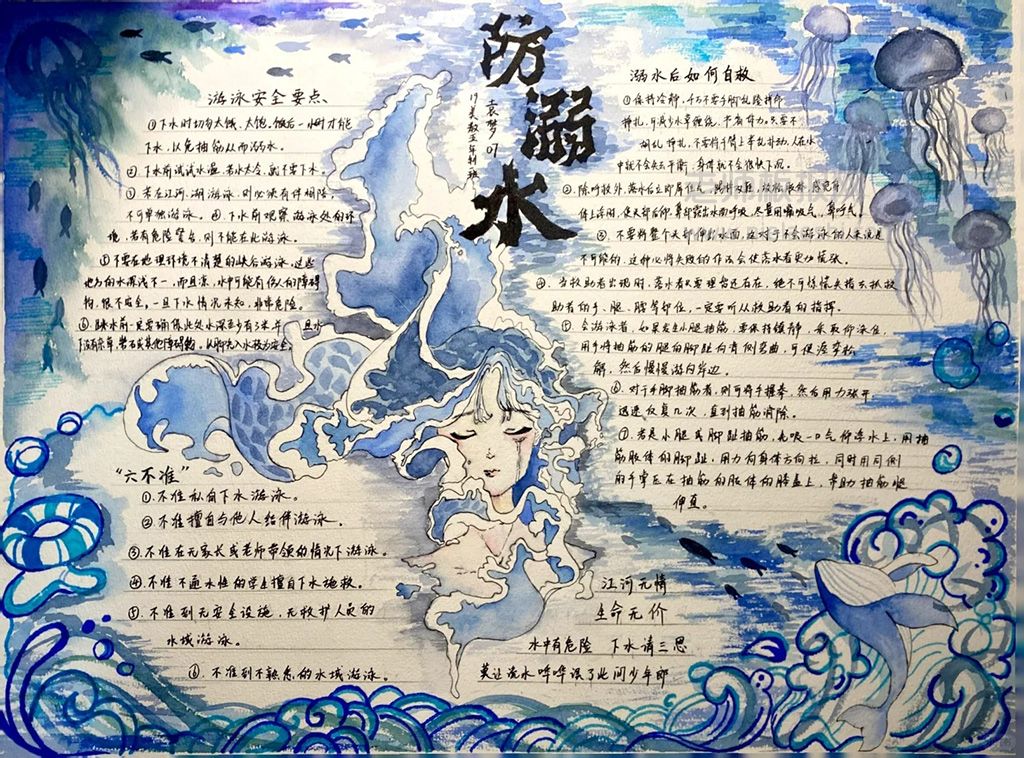 防溺水
袁梦 07
17美教五年制 班
游泳安全要点
①下水时切勿太饿、太饱。饭后一小时才能
下水,以免抽筋从而溺水。
②下水前试试水温,若水太冷,就不要下水。
③若在江河、湖游泳,则必须有伴相陪,
不可单独游泳。④下水前观察游泳处的环
境,若有危险警告,则不能在此游泳。
⑤不要在地理环境不清楚的峡谷游泳。这些
地方的水深浅不一,而且凉,水中可能有伤人的障碍
物,很不安全。一旦下水情况未知,非常危险。
⑥跳水前一定要确保此处水深至少有3米,且水
下没有杂草、岩石或其他障碍物,以脚先入水较为安全。
“六不准”
①.不准私自下水游泳。
②不准擅自与他人结伴游泳。
③.不准在无家长或老师带领的情况下游泳。
④.不准不通水性的学生擅自下水施救。
⑤.不准到无安全设施、无救护人员的
水域游泳。
⑥.不准到不熟悉的水域游泳。
溺水后如何自救
①保持冷静,千万不要手脚乱蹬拼命
挣扎,可减少水草缠绕,节省体力。只要不
胡乱挣扎,不要将手臂上举乱扑动,人在水
中就不会失去平衡,身体就不会很快下沉。
②.除呼救外,落水后立即屏住气,踢掉双鞋,放松肢体,感觉身
体上浮时,使头部后仰,鼻部露出水面呼吸,尽量用嘴吸气,鼻呼气。
③.不要将整个头部伸出水面,这对于不会游泳的人来说是
不可能的,这种必将失败的作法会使落水者更加紧张。
④.当救助者出现时,落水者只要理智还存在,绝不可惊慌失措去抓救
助者的手、腿、腰等部位,一定要听从救助者的指挥。
⑤会游泳者,如果发生小腿抽筋,要保持镇静,采取仰泳位,
用手将抽筋的腿的脚趾向背侧弯曲,可使痉挛松
解,然后慢慢游向岸边。
⑥.对于手脚抽筋者,则可将手握拳,然后用力张开,
迅速反复几次,直到抽筋消除。
⑦.若是小腿或脚趾抽筋,先吸一口气仰浮水上,用抽
筋肢体的脚趾,用力向身体方向拉,同时用同侧
的手掌压在抽筋的肢体的膝盖上,帮助抽筋腿
伸直。
江河无情
生命无价
水中有危险 下水请三思
莫让流水哗哗误了此间少年郎